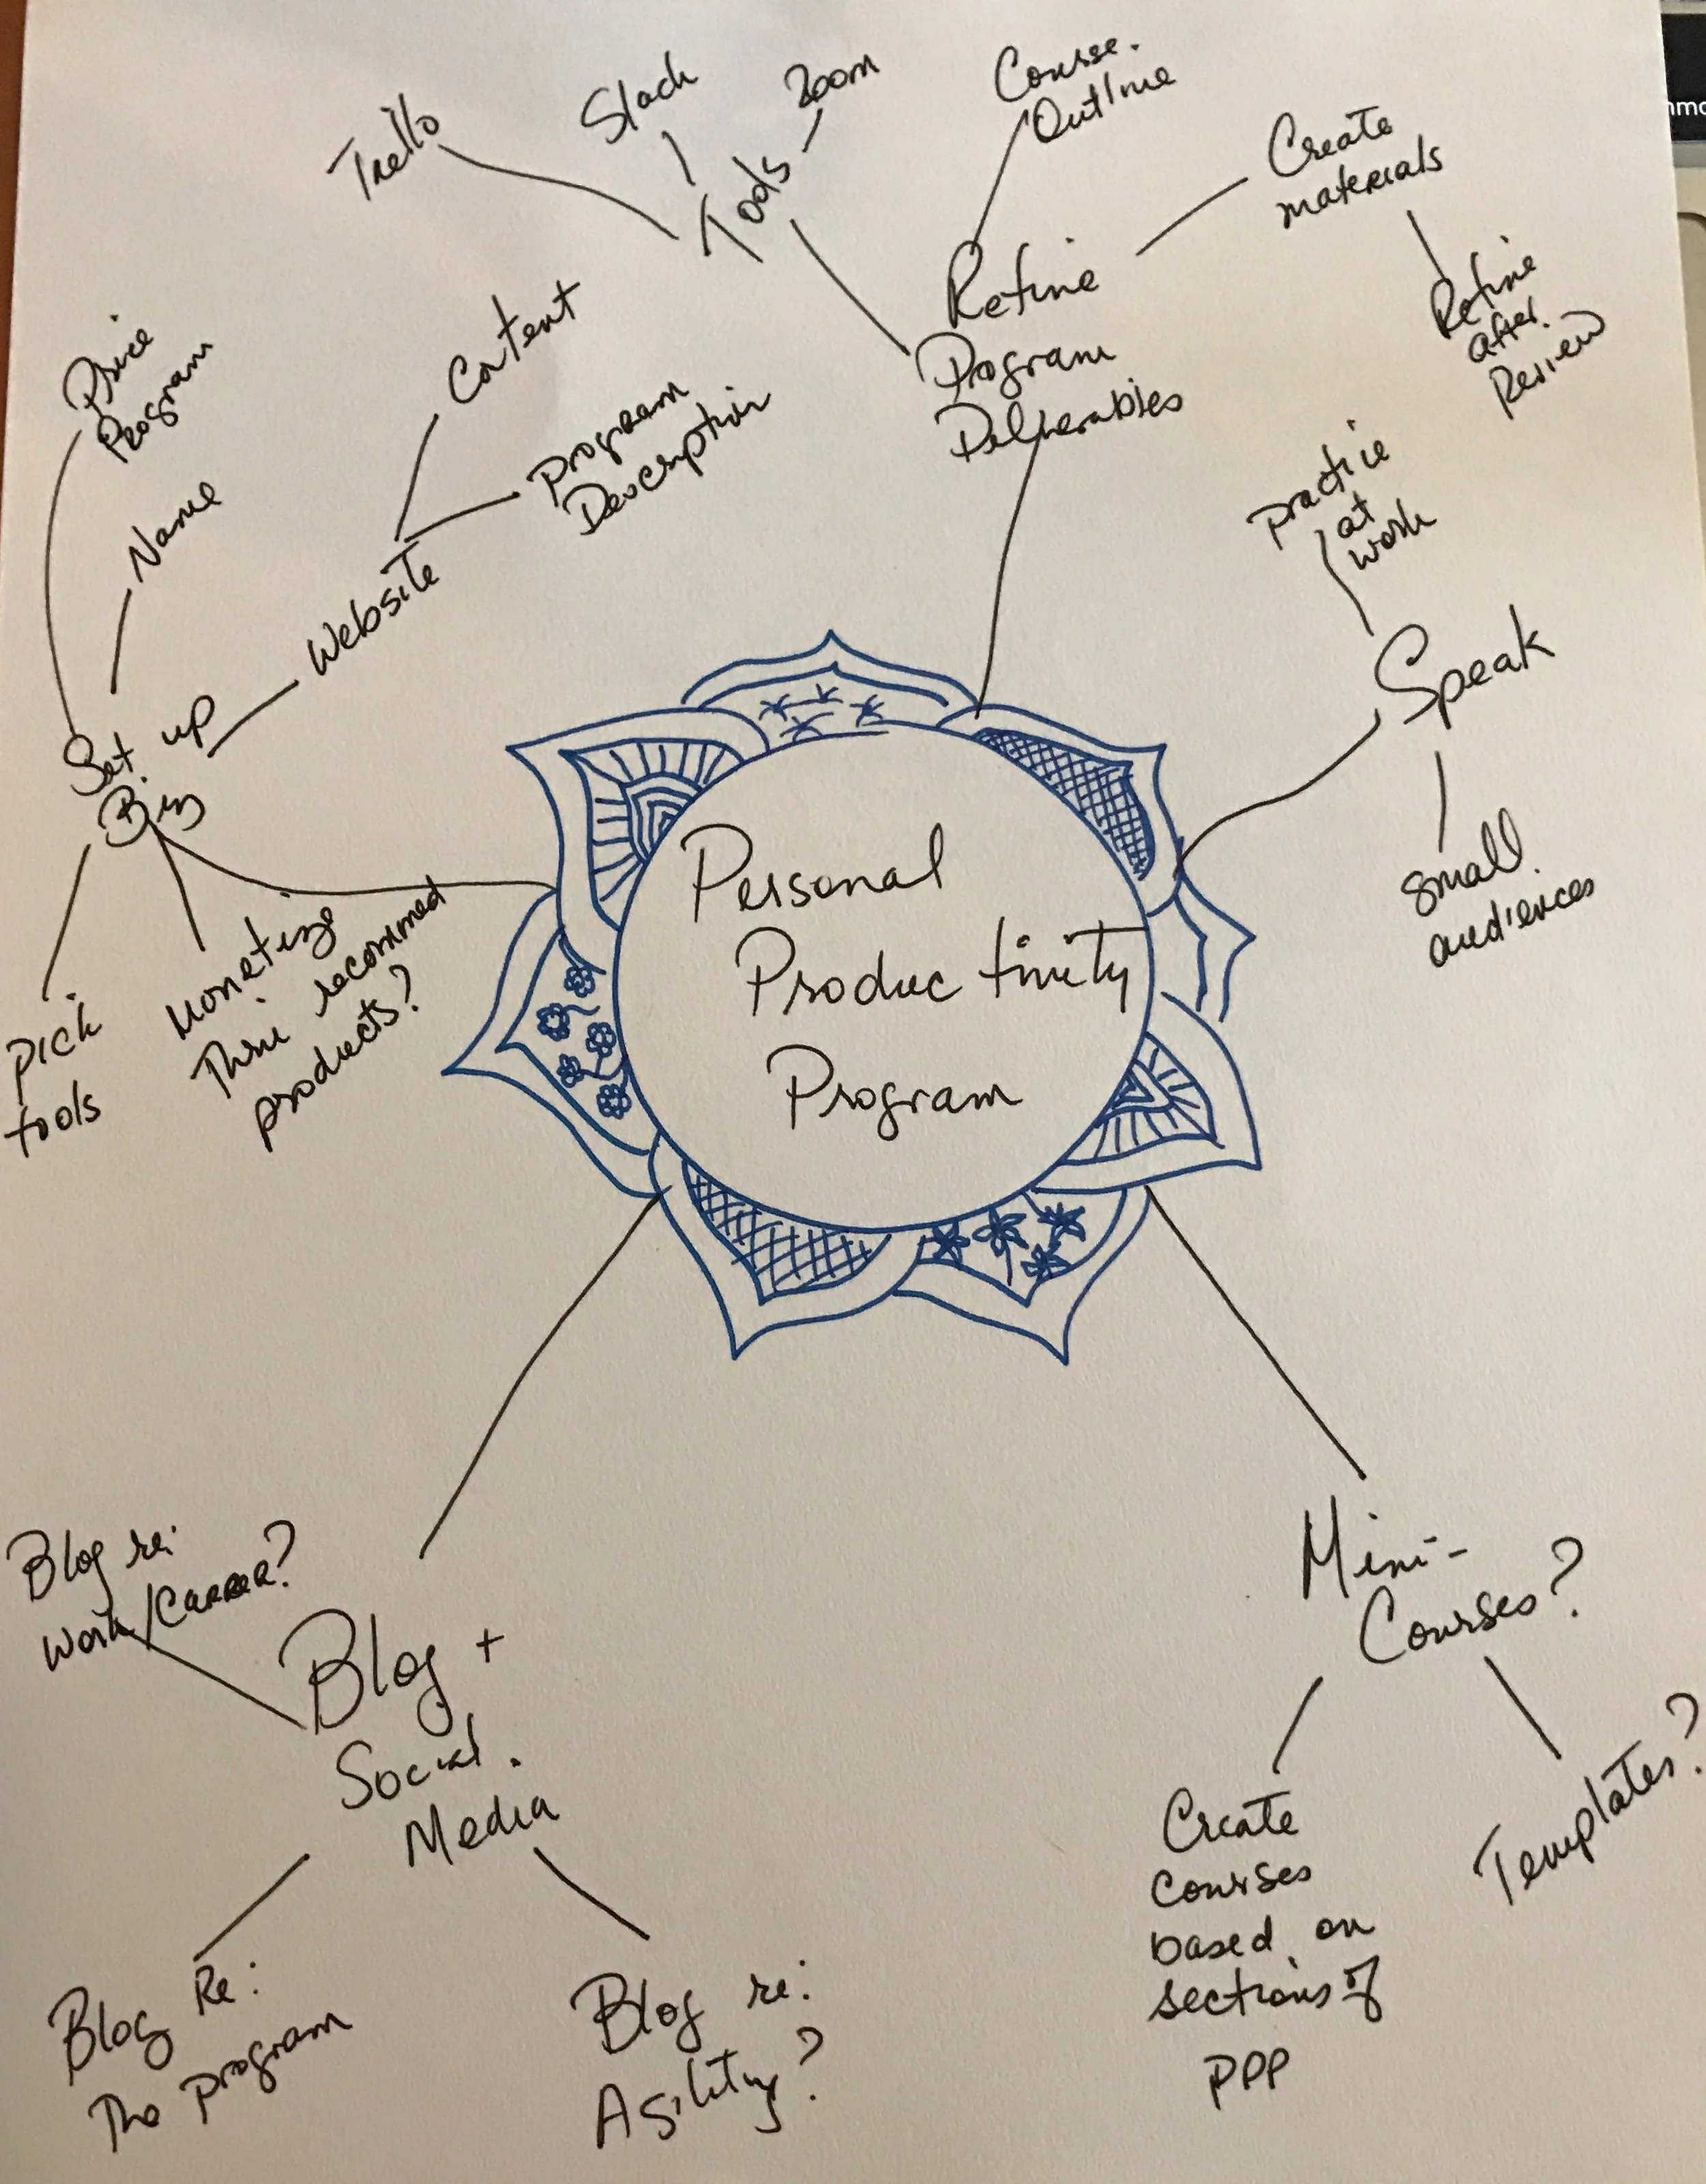 Personal
Productivity
Program
Refine
Program
Deliverables
Tools
Trello
Slack
Zoom
Course
Outline
Create
materials
Refine
after
Review
Speak
practice
at
work
small
audiences
Mini-
Courses?
Create
courses
based on
sections of
PPP
Templates?
Blog +
Social
Media
Blog re:
Work/Career?
Blog Re:
The program
Blog re:
Agility?
Set up
Biz
Price
Program
Name
Website
Content
Program
Description
Pick
tools
Monetize
Thru recommed
products?